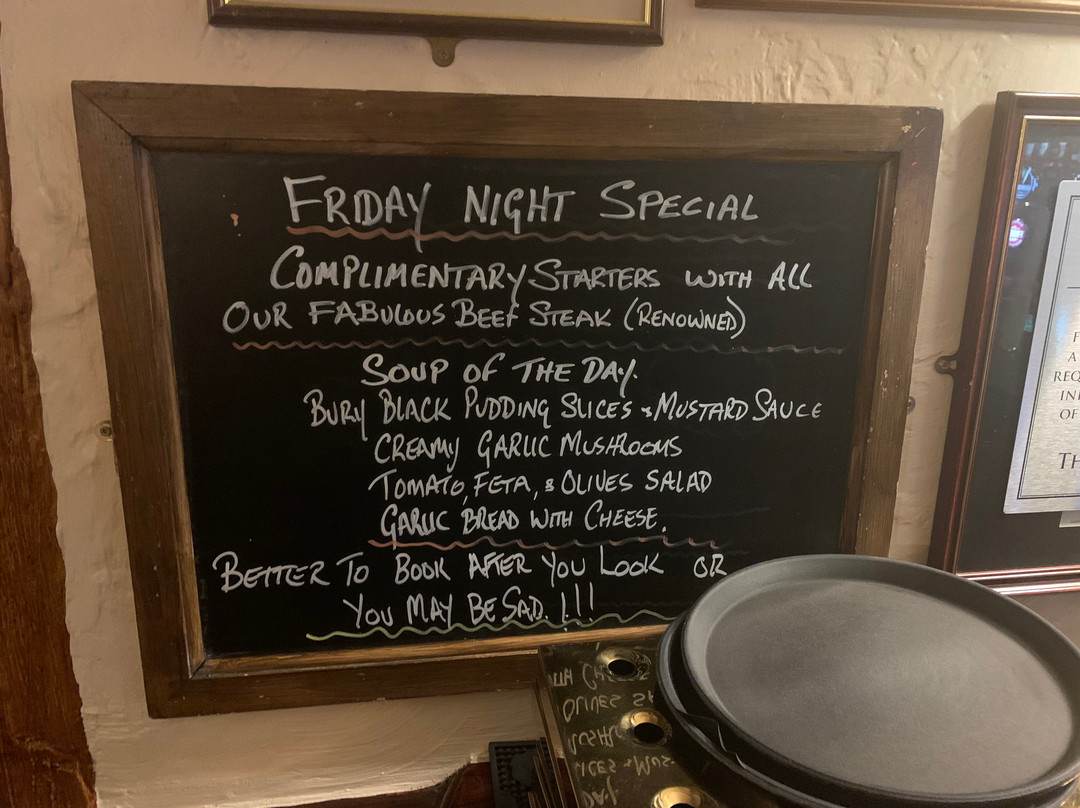 FRIDAY NIGHT SPECIAL
COMPLIMENTARY STARTERS WITH ALL
OUR FABULOUS BEEF STEAK (RENOWNED)
SOUP OF THE DAY.
BURY BLACK PUDDING SLICES & MUSTARD SAUCE
CREAMY GARLIC MUSHROOMS
TOMATO, FETA, & OLIVES SALAD
GARLIC BREAD WITH CHEESE.
BETTER TO BOOK AFTER YOU LOOK OR
YOU MAY BE SAD.!!!
F
A
REQ
IN
OF
TH